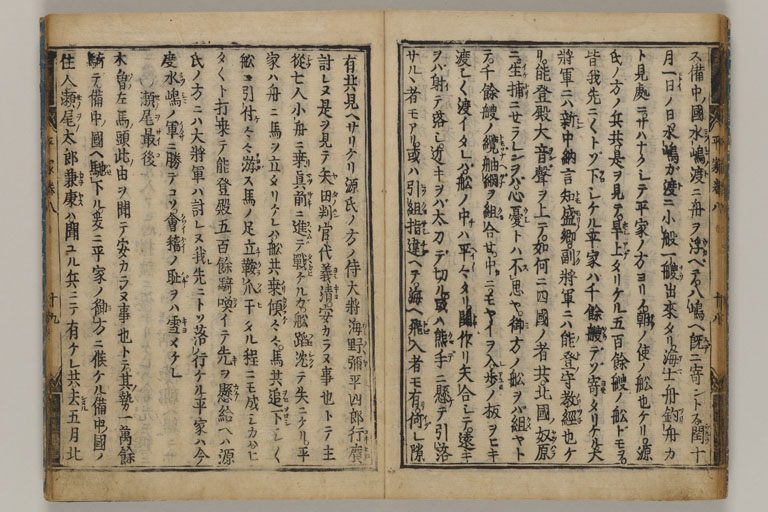 ス備中ノ國水嶋渡ニ舟ヲ浮ベテ八嶋ヘ既ニ寄ントス閏十
月一日ノ日水嶋ガ渡ニ小舩一艘出來タリ海士舟釣舟カ
ト見處ニサハナクシテ平家ノ方ヨリノ朝ノ使ノ舩也ケリ源
氏ノ方ノ兵共是ヲ見テ早上タリケル五百餘艘ノ舩トモヲ
皆我先ニ〱トゾ下シケル平家ハ千餘艘テゾ寄タリケル大
將軍ニハ新中納言知盛卿副將軍ニハ能登守教經也ケ
リ能登殿大音聲ヲ上テ如何ニ四國ノ者共北國ノ奴原
ニ生捕ニセラレンヲバ心憂トハ不思ヤ御方ノ舩ヲバ組ヤト
テ千餘艘ノ纜舳綱ヲ組合セ中ニモヤイヲ入歩ノ板ヲヒキ
渡シ〱渡イタレバ舩ノ中ハ平々タリ鬨作リ矢合シテ遠キ
ヲバ射テ落シ近キヲバ太刀デ切ル或ハ熊手ニ懸テ引落
サルヽ者モアリ或ハ引組指違ヘテ海ヘ飛入者モ有何レ隙
有共見ヘサリケリ源氏ノ方ノ侍大將海野彌平四郎行廣
討レヌ是ヲ見テ矢田判官代義清安カラヌ事也トテ主
從七人小舟ニ乘真前ニ進テ戰ケルガ舩蹈沈テ失ニケリ平
家ハ舟ニ馬ヲ立タリケレバ舩共乘傾々々馬共追下シ〱
舩ニ引付々々游ス馬ノ足立鞍爪干タル程ニモ成シカバヒ
タ〱ト打乘テ能登殿五百餘騎喚イテ先ヲ懸給ヘハ源
氏ノ方ニハ大將軍ハ討レヌ我先ニトゾ落行ケル平家ハ今
度水嶋ノ軍ニ勝テコソ會稽ノ耻ヲハ雪メケレ
瀬尾最後
木曽左馬頭此由ヲ聞テ安カラヌ事也トテ其勢一萬餘
騎テ備中國ヘ馳下ル爰ニ平家ノ御方ニ候ケル備中國ノ
住人瀬尾太郎兼康ハ聞ユル兵ニテ有ケレ共去五月北
平家巻八
十九